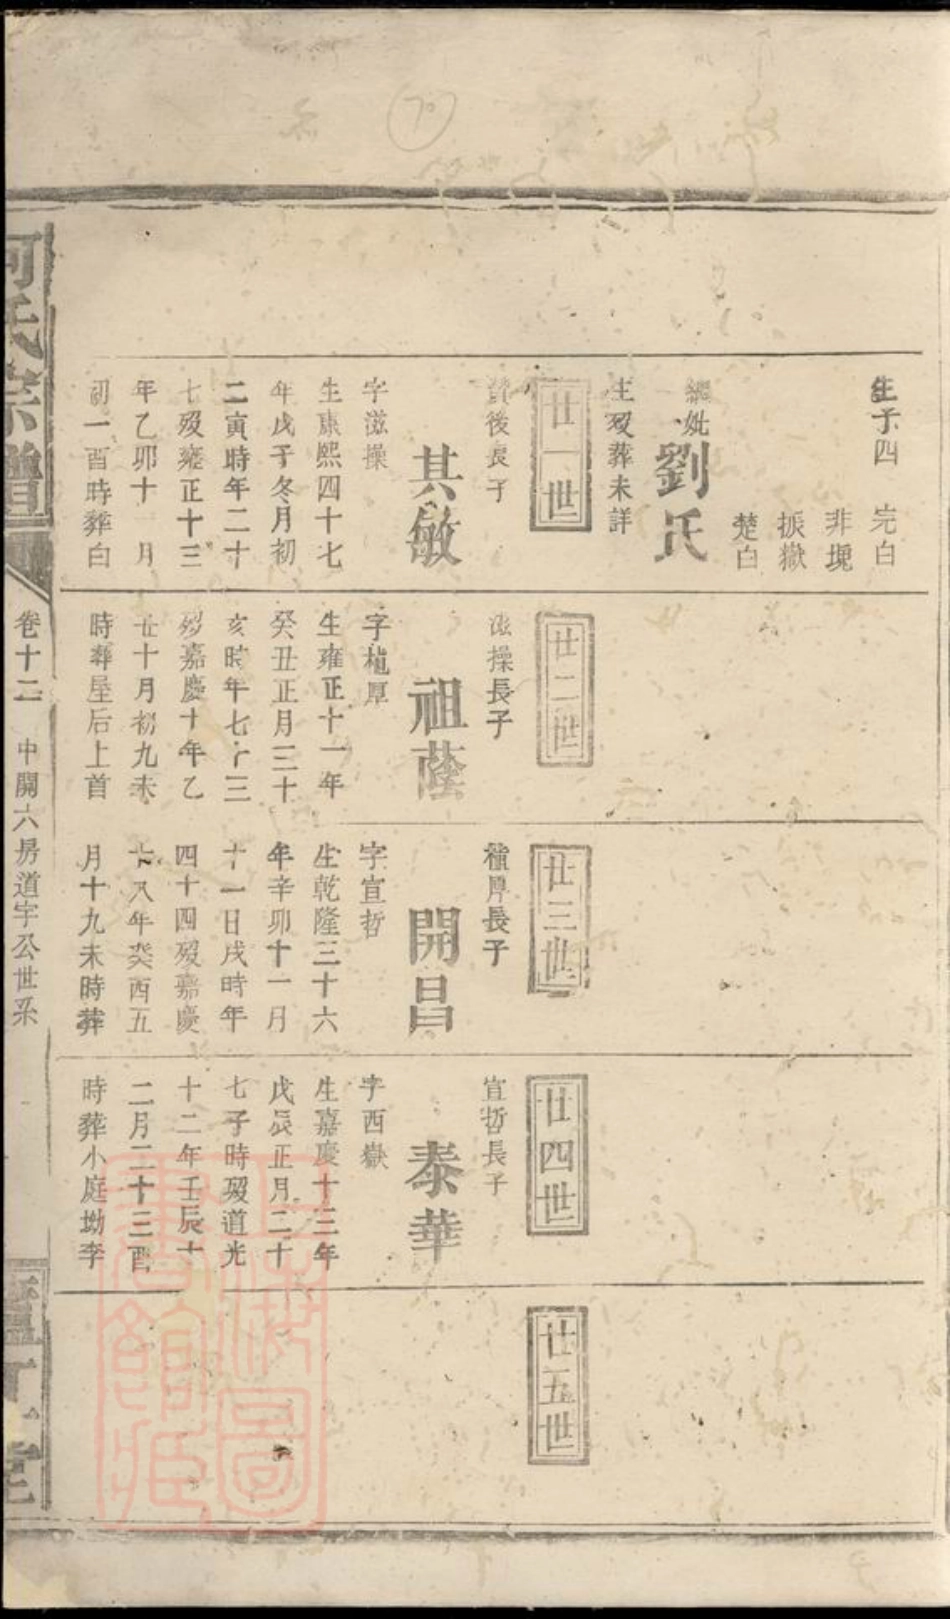 生子四
完白
非塊
振嶽
楚白
繼妣
劉氏
生歿葬未詳
廿一世
賛後長子
其敏
字滋操
生康熙四十七
年戊子冬月初
二寅時年二十
七歿雍正十三
年乙卯十 月
初一酉時葬白
廿二世
滋操長子
祖蔭
字植厚
生雍正十一年
癸丑正月三十
亥時年七十三
歿嘉慶十年乙
丑十月初九未
時葬屋后上首
廿三世
植厚長子
開昌
字宣哲
生乾隆三十六
年辛卯十一月
十一日戌時年
四十四歿嘉慶
十八年癸酉五
月十九未時葬
廿四世
宣哲長子
泰華
字西嶽
生嘉慶十三年
戊辰正月二十
七子時歿道光
十二年壬辰十
二月二十三酉
時葬小庭坳李
廿五世
何氏宗譜
卷十二
中開六房道字公世系
上海圖書館藏